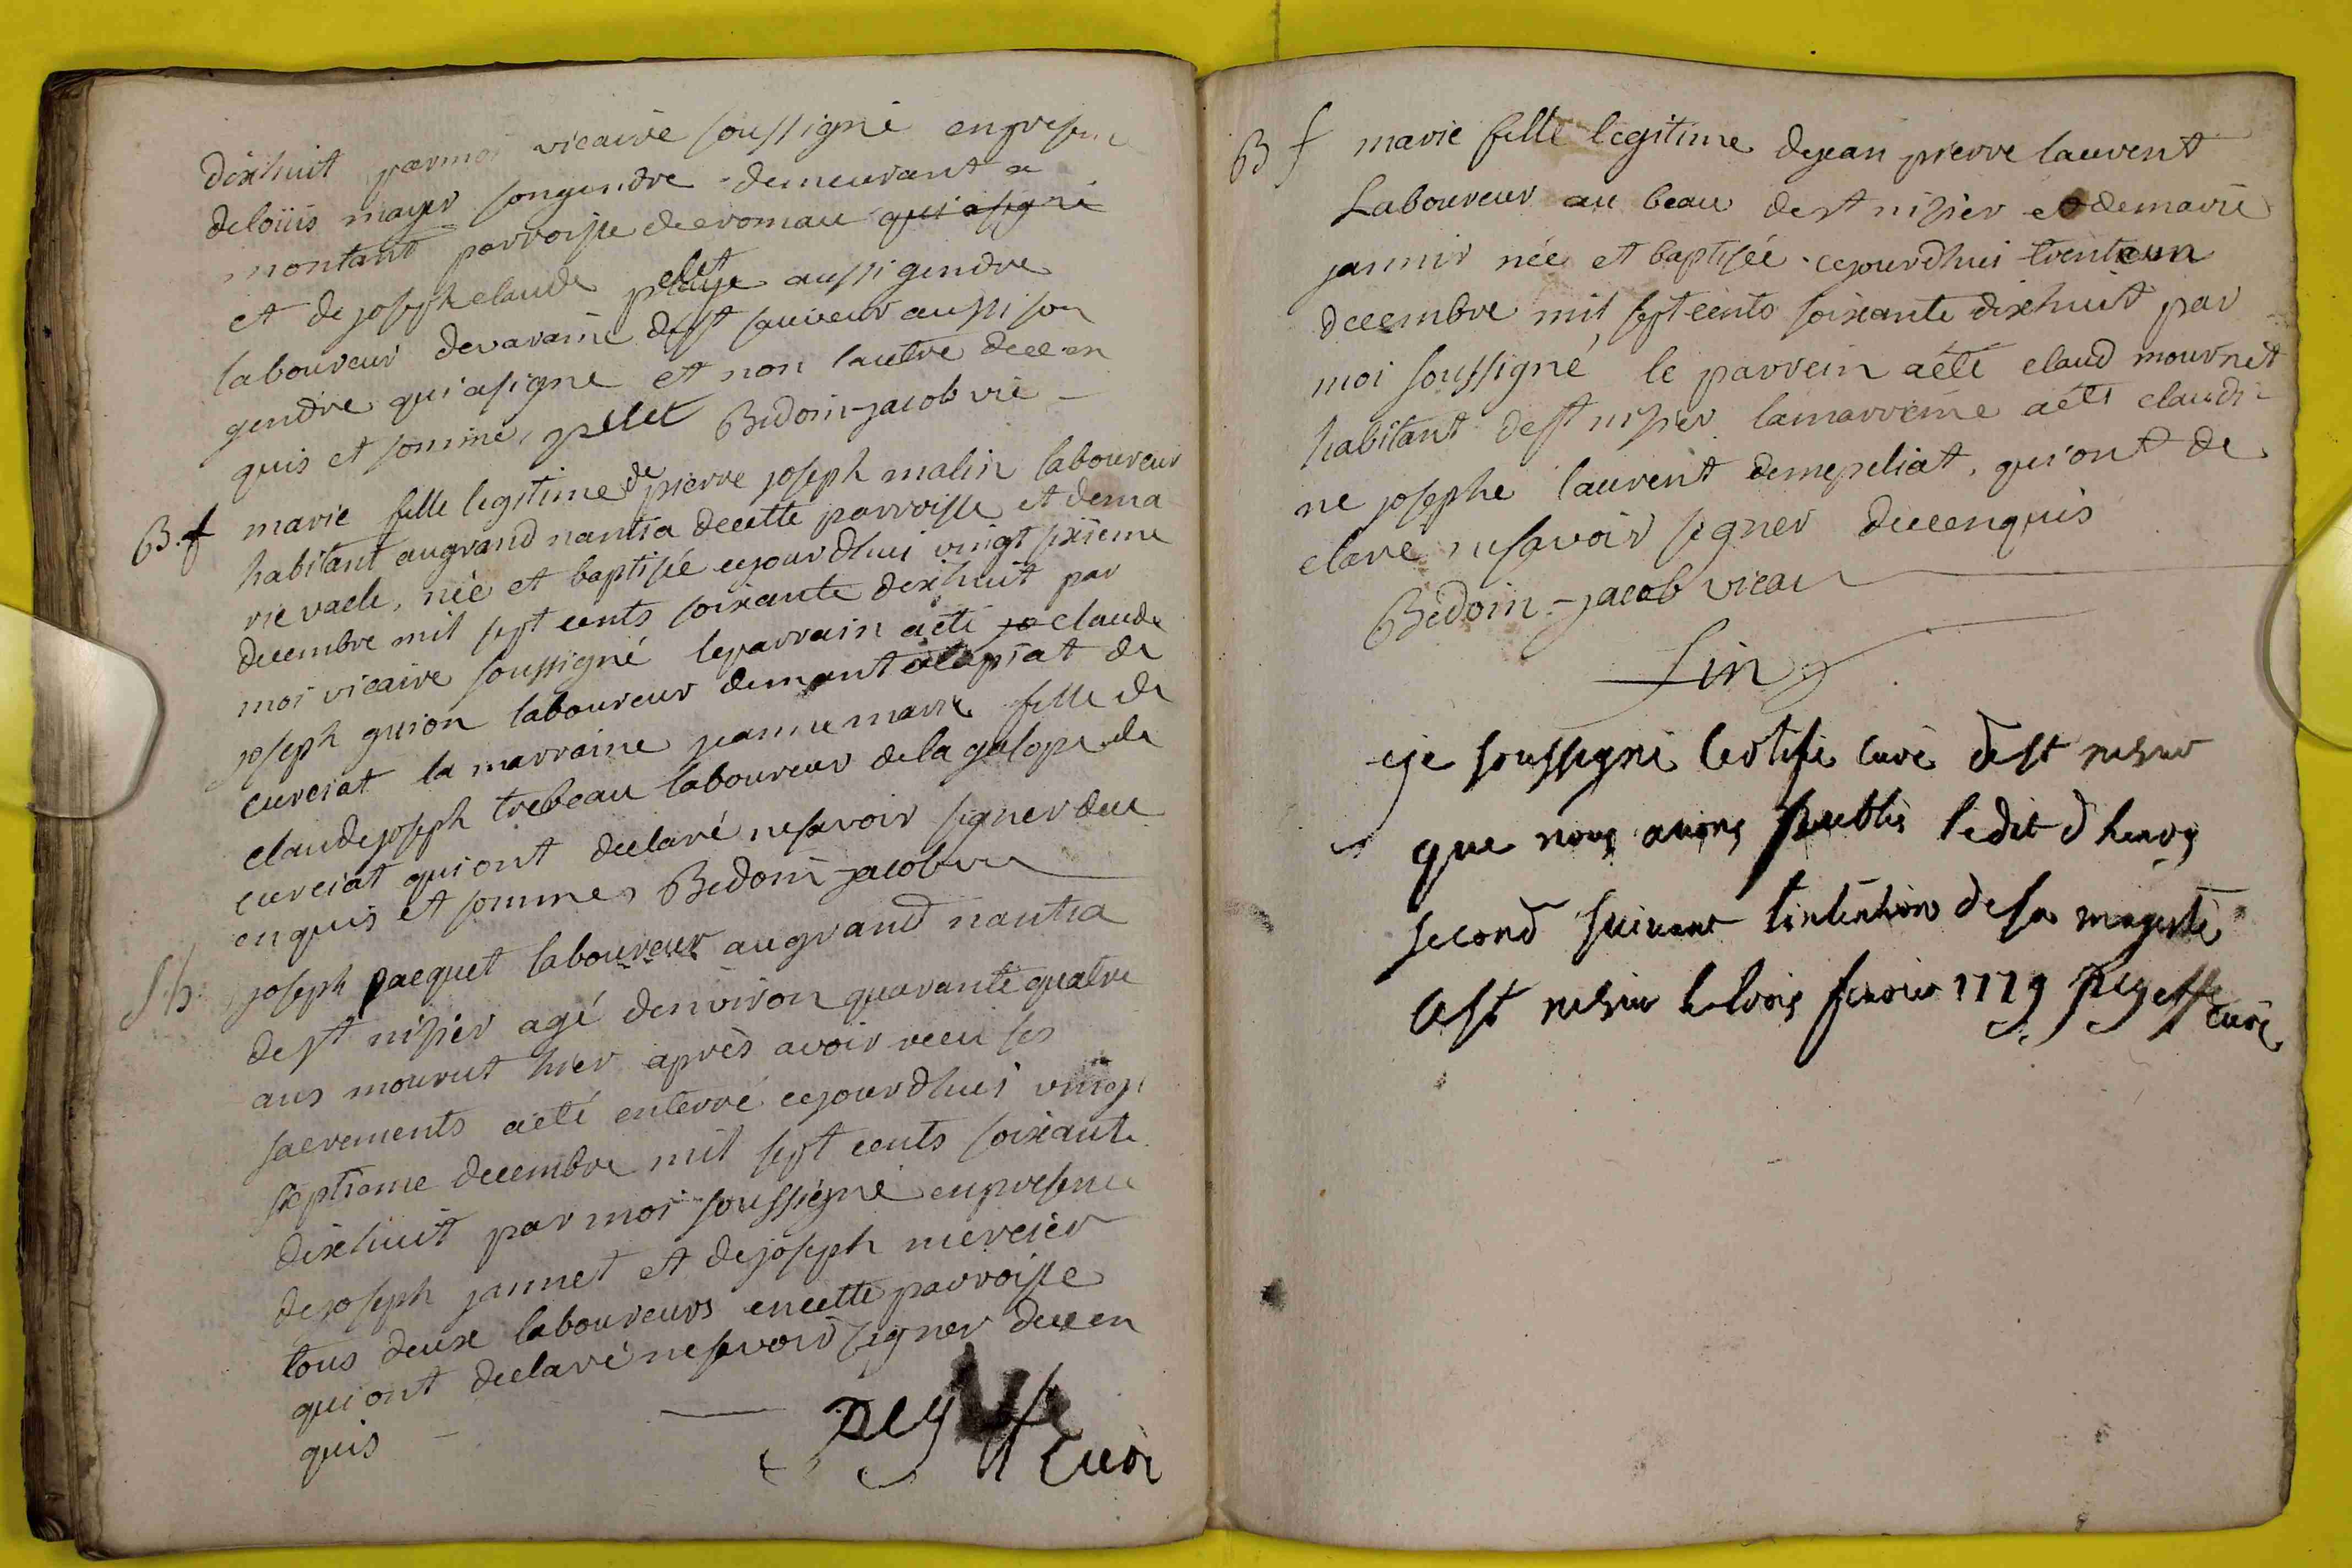 dixhuit parmoi vicaire soussigné en presen
delöüis mayer songendre demeurant a
montant parroisse decromau qui a signé
et de joseph claude pelet aussi gendre
laboureur devaraine dest sauveur aussi son
gendre qui a signe et non lautre dece en
quis et sommé, pelet Bidoin-jacob vic
B. f marie fille legitime de pierre joseph malin laboureur
habitant augrand nantia decette parroisse et dema
rie vacle, née et baptisée cejourdhui vingt sixieme
decembre mil sept cents soixante dixhuit par
moi vicaire soussigné leparrain aété jo claude
joseph guion laboureur demant de
curciat la marraine jeanne marie fille de
claudejoseph trebeau laboureur dela galope de
curciat qui ont declaré nesavoir signer dece
enquis et sommés Bidoin-jacob vic
S. h. joseph pacquet laboureur augrand nantia
dest nisier agé denviron quarante quatre
ans mourut hier après avoir receu ses
sacrements aété enterré cejourdhui vingt
septieme decembre mil sept cents soixante
dixhuit par moi soussigné enpresence
dejoseph jannet et dejoseph mercier
tous deux laboureurs encette parroisse
qui ont declaré nesavoir signer dece en
quis
curé
B f marie fille legitime dejean pierre laurent
Laboureur au beau dest nisier et demarie
jannir née et baptisée cejourdhui trenteun
decembre mil sept cents soixante dixhuit par
moi soussigné le parrein aété claud mournet
habitant dest nisier lamarreine aété claudi
ne josephe laurent demepeliat, qui ont de
claré nesavoir signer dece enquis
Bidoin-jacob vicai
fin
eje soussigné Certifie curé dest nisier
que nous avons publié ledit d henry
second suivant lintention de sa majesté
a st nisier le trois fevrier 1779 curé